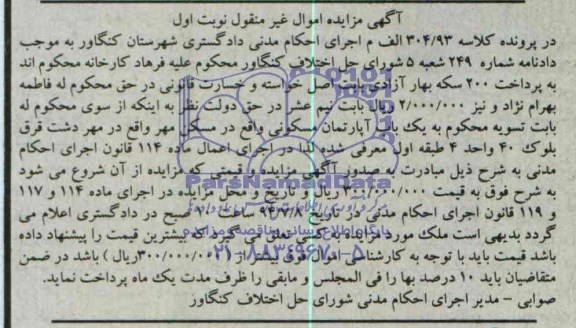 آگهی مزایده اموال غیر منقول نوبت اول
در پرونده کلاسه ۳۰۴/۹۳ الف م اجرای احکام مدنی دادگستری شهرستان کنگاور به موجب
دادنامه شماره ۲۴۹ شعبه ۵ شورای حل اختلاف کنگاور محکوم علیه فرهاد کارخانه محکوم اند
به پرداخت ۲۰۰ سکه بهار آزادی بابت اصل خواسته و خسارت قانونی در حق محکوم له فاطمه
بهرام نژاد و نیز ۲/۰۰۰/۰۰۰ ریال بابت نیم عشر در حق دولت نظر به اینکه از سوی محکوم له
بابت تسویه محکوم به یک باب آپارتمان مسکونی واقع در مسکن مهر واقع در مهر دشت قرق
بلوک ۴۰ واحد ۴ طبقه اول معرفی شده لذا در اجرای اعمال ماده ۱۱۴ قانون اجرای احکام
مدنی به شرح ذیل مبادرت به صدور آگهی مزایده و قیمتی که مزایده از آن شروع می شود
به شرح فوق به قیمت ریال و تاریخ و محل مزایده در اجرای ماده ۱۱۴ و ۱۱۷
و ۱۱۹ قانون اجرای احکام مدنی در تاریخ ۹۴/۷/۸ ساعت صبح در دادگستری اعلام می
گردد بدیهی است ملک مورد مزایده به کسی تعلق می گیرد که بیشترین قیمت را پیشنهاد داده
باشد قیمت باید با توجه به کارشناسی اموال فوق بیشتر از ( ۳۰۰/۰۰۰/۰۰۰ریال ) باشد در ضمن
متقاضیان باید ۱۰ درصد بها را فی المجلس و مابقی را ظرف مدت یک ماه پرداخت نماید.
صوابی – مدیر اجرای احکام مدنی شورای حل اختلاف کنگاور
ParsNamadData
پایگاه اطلاع رسانی مناقصه و مزایده
۰۲۱-۸۸۳۴۹۶۷۰-۵